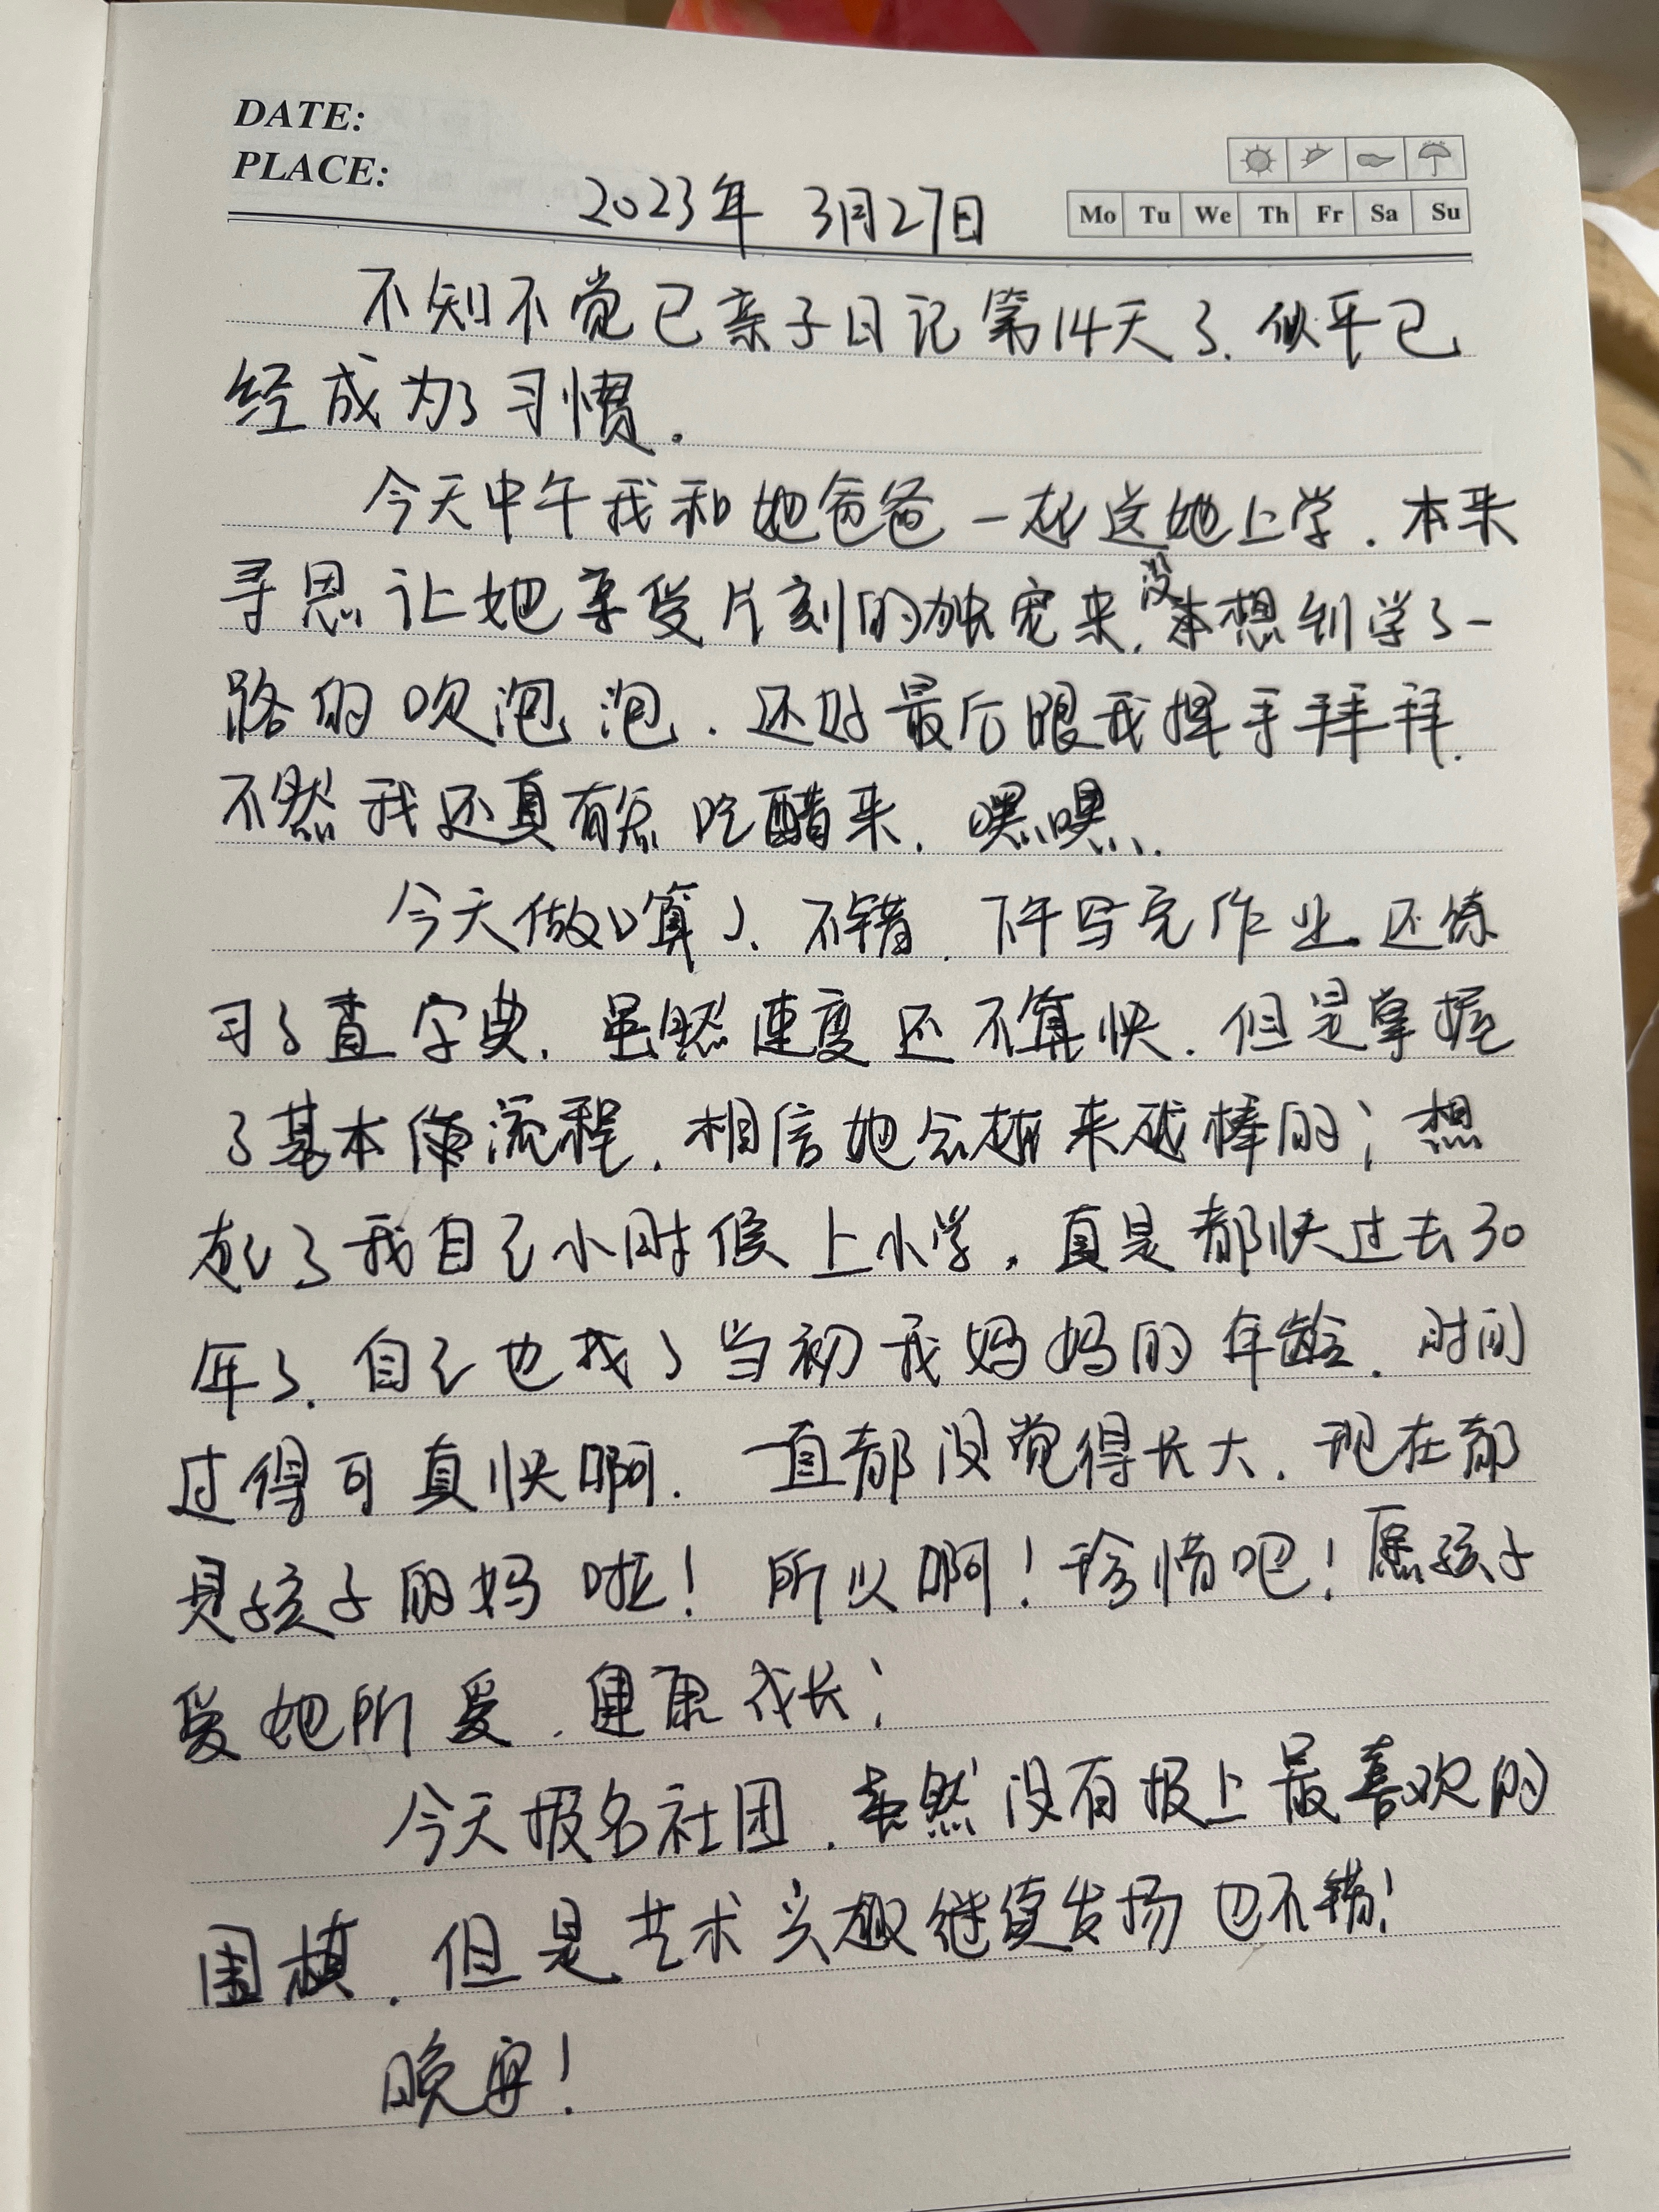 DATE:
PLACE:
2023年 3月27日
Mo Tu We Th Fr Sa Su
不知不觉已亲子日记第14天了.似乎已
经成为了习惯.
今天中午我和她爸爸一起送她上学.本来
寻思让她享受片刻的独宠来,没想到学了一
路的吹泡泡.还好最后跟我挥手拜拜.
不然我还真有点吃醋来.嘿嘿.
今天做口算了、不错.下午写完作业还练
习了查字典.虽然速度还不算快.但是掌握
了基本流程.相信她会越来越棒的;想
起了我自己小时候上小学,真是都快过去30
年了.自己也成了当初我妈妈的年龄.时间
过得可真快啊.一直都没觉得长大.现在都
是孩子的妈啦!所以啊!珍惜吧!愿孩子
爱她所爱.健康成长;
今天报名社团.虽然没有报上最喜欢的
围棋.但是艺术兴趣继续发扬也不错!
晚安!